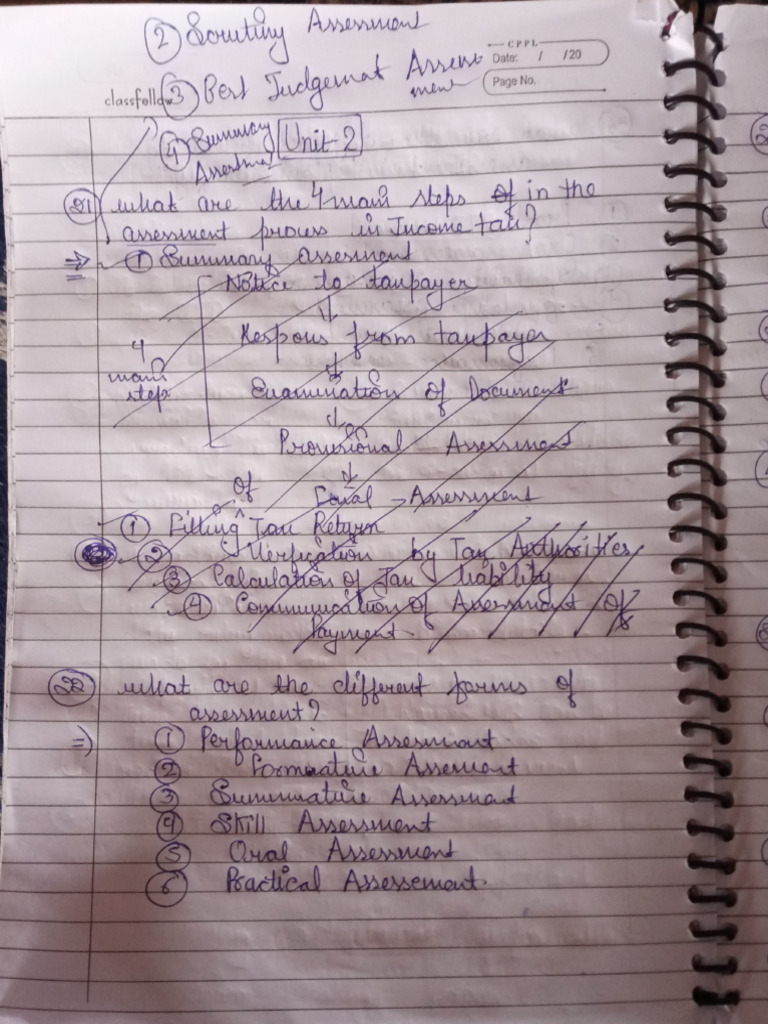 ② Scrutiny Assessment
CPPL
Date: / /20
③ Best Judgemat Assess
ment
Page No.
classfellow
④ Summary
Assessment
Unit-2
21 What are the 4 main steps of in the
assessment process in Income tax?
⇒ ① Summary assesment
Notice to taxpayer
↓
Respons from taxpayer
↓
4
main
step
Examination of Document
↓
Provisional - Assessment
↓
Final - Assessment
① Filling of Tax Return
② Verfication by Tax Authorities
③ Calculation of Tax liability
④ Communication of Assessment of
Payment
22 What are the different forms of
assessment?
⇒ ① Performance Assesment
② Formature Assement
③ Summature Assessmant
④ Skill Assessment
⑤ Oral Assessment
⑥ Practical Assessement